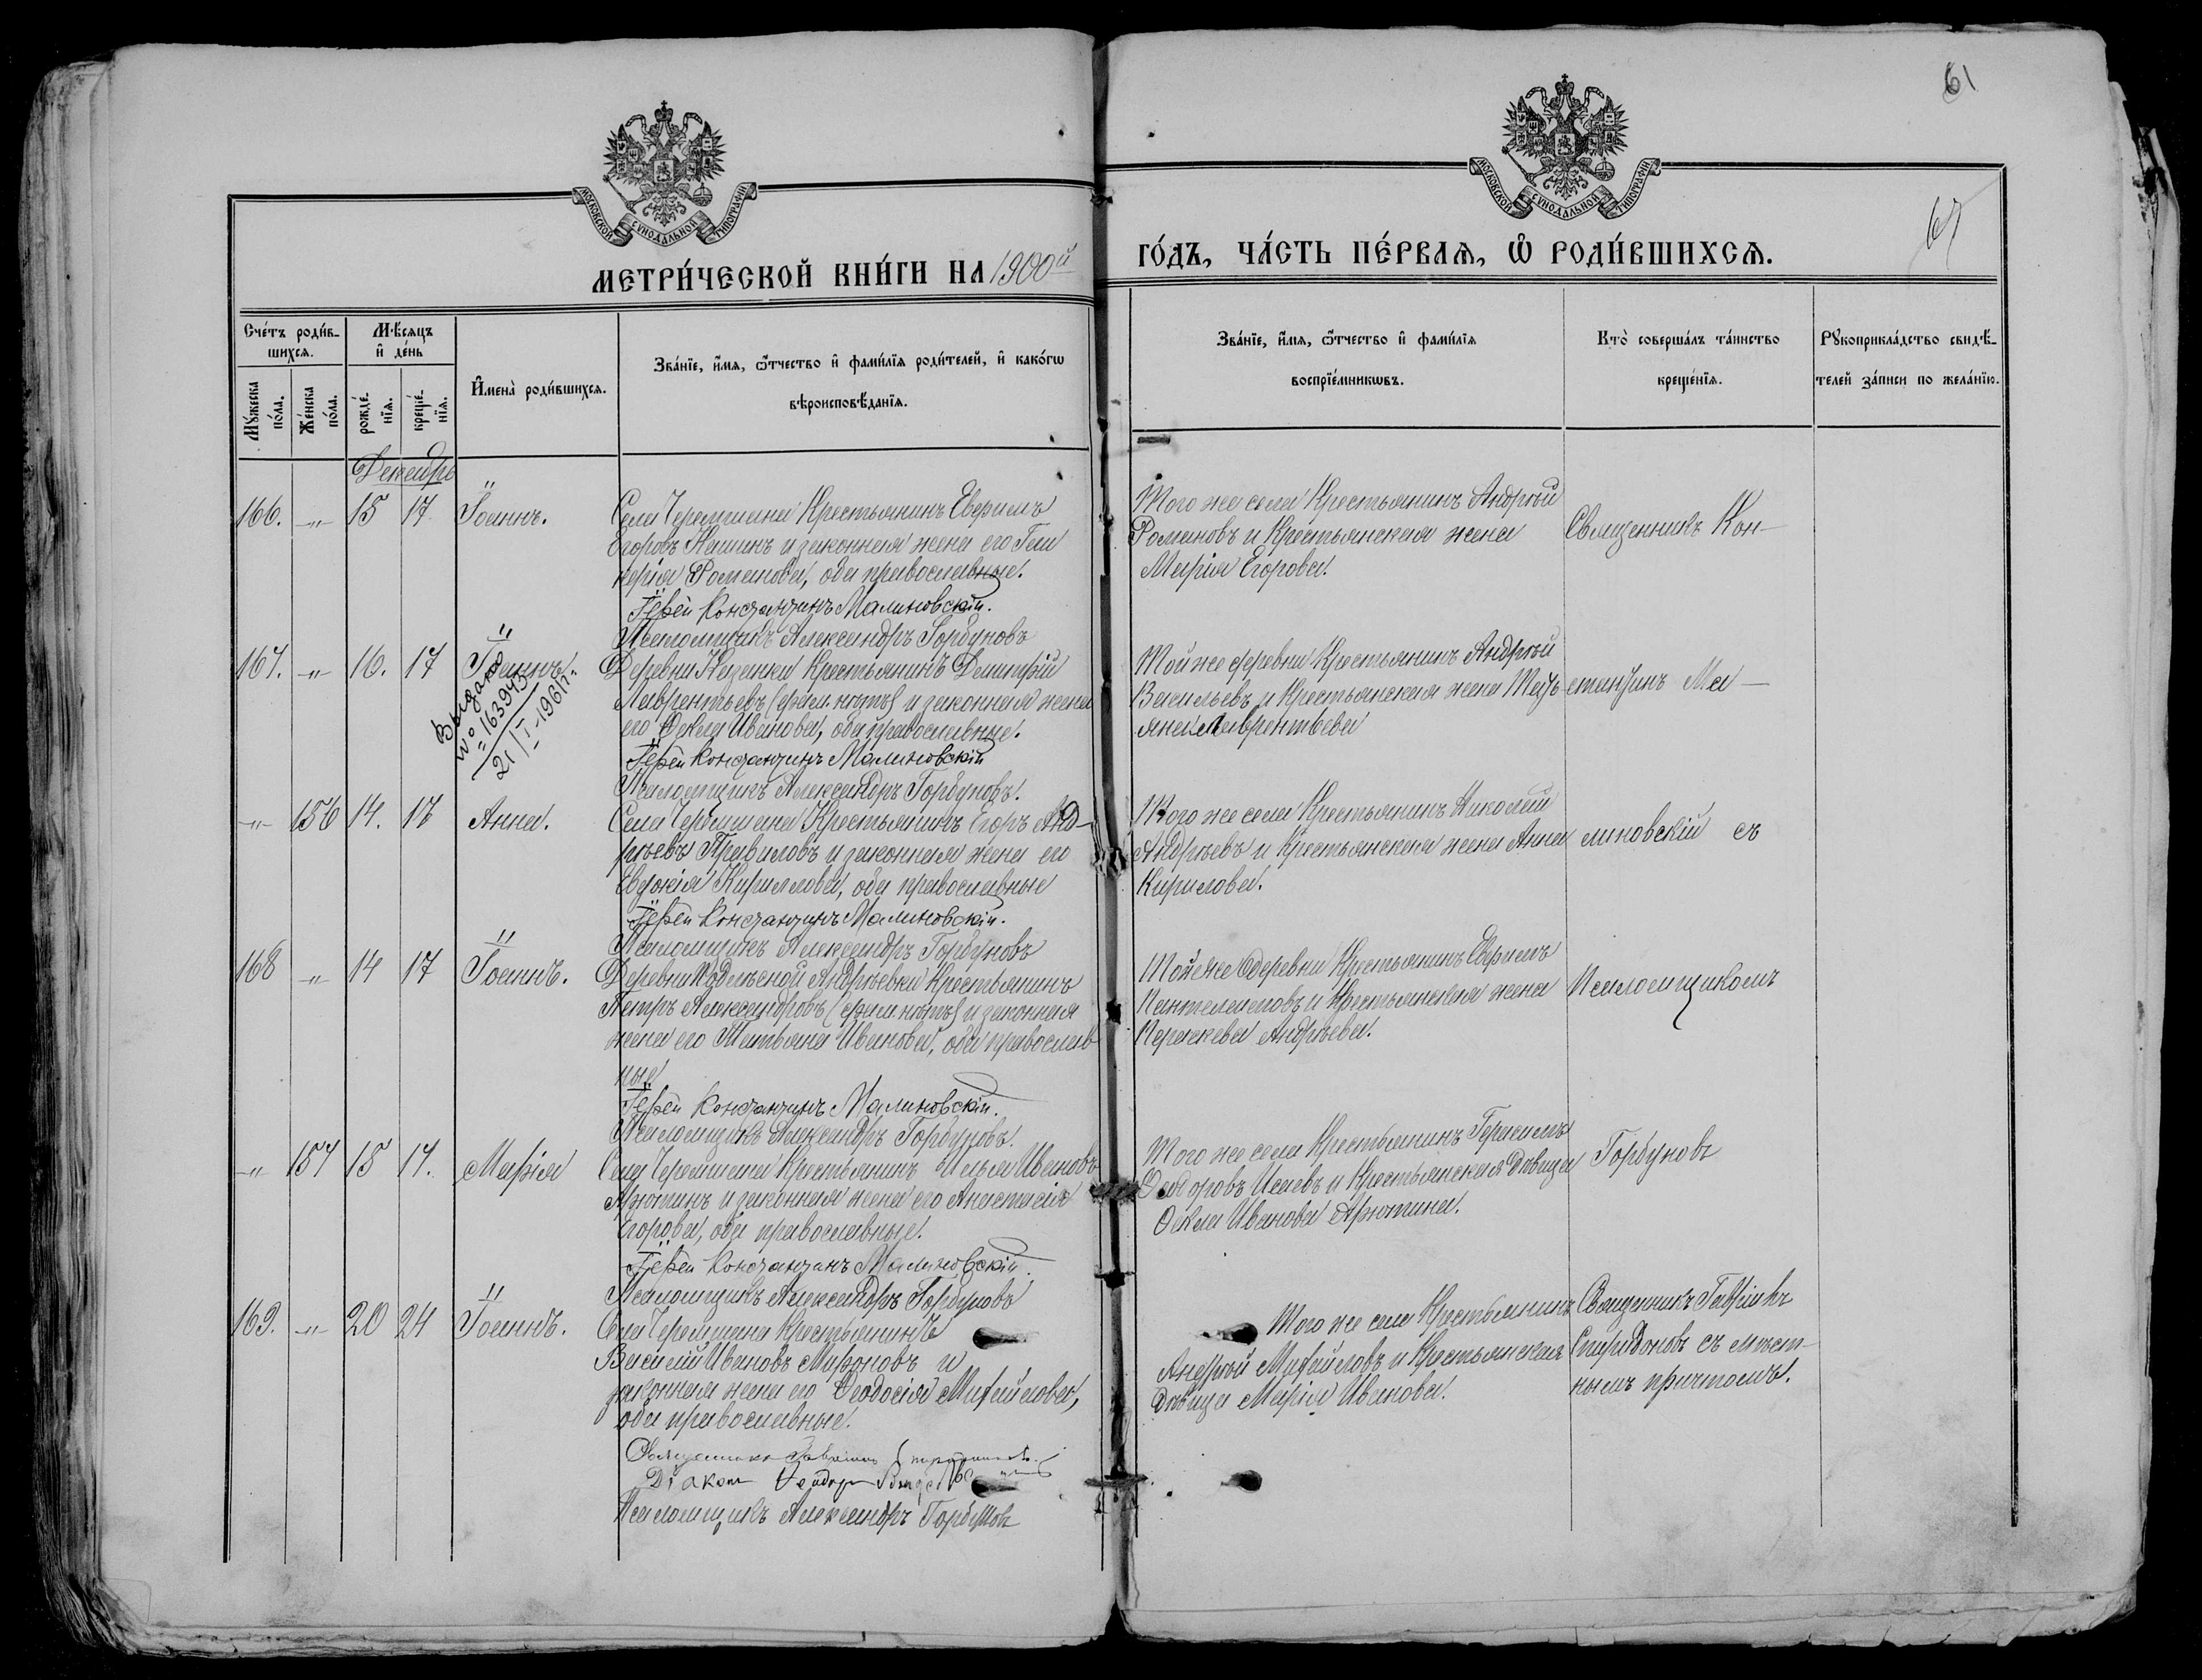 61
67
МОСКОВСКОЙ СѴНОДАЛЬНОЙ ТИПОГРАФІИ
МОСКОВСКОЙ СѴНОДАЛЬНОЙ ТИПОГРАФІИ
МЕТРИ́ЧЕСКОЙ КНИ́ГИ НА 1900й
ГО́ДЪ, ЧА́СТЬ ПЕ́РВАЯ, Ѽ РОДИ́ВШИХСЯ.
Сче́тъ роди́в-
шихся.
Мꙋ́жеска
по́ла.
Же́нска
по́ла.
Мѣ́сяцъ
и҆ де́нь
рожде́-
нїя.
креще́-
нїя.
И҆мена̀ роди́вшихся.
Зва́нїе, и҆́мя, ѻ҆́тчество и҆ фами́лїя роди́телей, и҆ како́гѡ
вѣроисповѣ́данїя.
Зва́нїе, и҆́мя, ѻ҆́тчество и҆ фами́лїя
воспрїе́мникѡвъ.
Кто̀ соверша́лъ та́инство
креще́нїя.
Рꙋкоприкла́дство свидѣ́-
телей за́писи по жела́нїю.
Декабрь
166. -"- 15 17 Іоаннъ.
Села Черемшана Крестьянинъ Евфимъ
Егоровъ Кашинъ и законная жена его Гли
керія Романова, оба православные.
Іерей Константинъ Малиновскій.
Псаломщикъ Александръ Горбуновъ
Того же села Крестьянинъ Андрей
Романовъ и Крестьянская жена
Марія Егорова.
Священникъ Кон-
167. -"- 16. 17 Іоаннъ.
Выдано
№ 163943
21/I-1961г.
Деревни Казанки Крестьянинъ Димитрій
Лаврентьевъ (фам. нѣтъ) и законная жена
его Ѳекла Иванова, оба православные.
Іерей Константинъ Малиновскій
Псаломщикъ Александръ Горбуновъ.
Той же деревни Крестьянинъ Андрей
Васильевъ и Крестьянская жена Тать-
яна Лаврентьева
стантинъ Ма-
-"- 156 14. 17 Анна.
Села Черемшана Крестьянинъ Егоръ Анд-
реевъ Правиловъ и законная жена его
Евдокія Кириллова, оба православные
Іерей Константинъ Малиновскій.
Псаломщикъ Александръ Горбуновъ
Того же села Крестьянинъ Николай
Андреевъ и Крестьянская жена Анна
Кирилова.
линовскій съ
168 -"- 14 17 Іоаннъ.
Деревни Подлѣсной Андреевки Крестьянинъ
Петръ Александровъ (фам. нѣтъ) и законная
жена его Татьяна Иванова, оба православ
ные
Іерей Константинъ Малиновскій.
Псаломщикъ Александръ Горбуновъ.
Той же деревни Крестьянинъ Евфимъ
Пантелеимовъ и Крестьянская жена
Параскева Андреева.
Псаломщикомъ
-"- 157 15 17. Марія
Села Черемшана Крестьянинъ Илья Ивановъ
Арютинъ и законная жена его Анастасія
Егорова, оба православные.
Іерей Константинъ Малиновскій.
Псаломщикъ Александръ Горбуновъ
Того же села Крестьянинъ Герасимъ
Ѳеодоровъ Исаевъ и Крестьянская дѣвица
Ѳекла Иванова Арютина.
Горбуновъ
169. -"- 20 24 Іоаннъ.
Села Черемшана Крестьянинъ
Василій Ивановъ Мироновъ и
законная жена его Ѳеодосія Михайлова,
оба православные.
Священникъ Гавріилъ Спиридоновъ
Діаконъ
Псаломщикъ Александръ Горбуновъ
Того же села Крестьянинъ
Андрей Михайловъ и Крестьянская
дѣвица Марія Иванова.
Священникъ Гавріилъ
Спиридоновъ съ мѣст-
нымъ причтомъ.